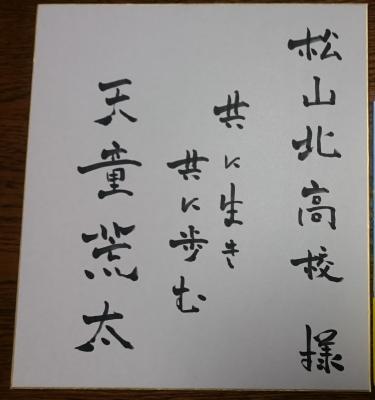 松山北高校 様
共に生き
共に歩む
天童荒太